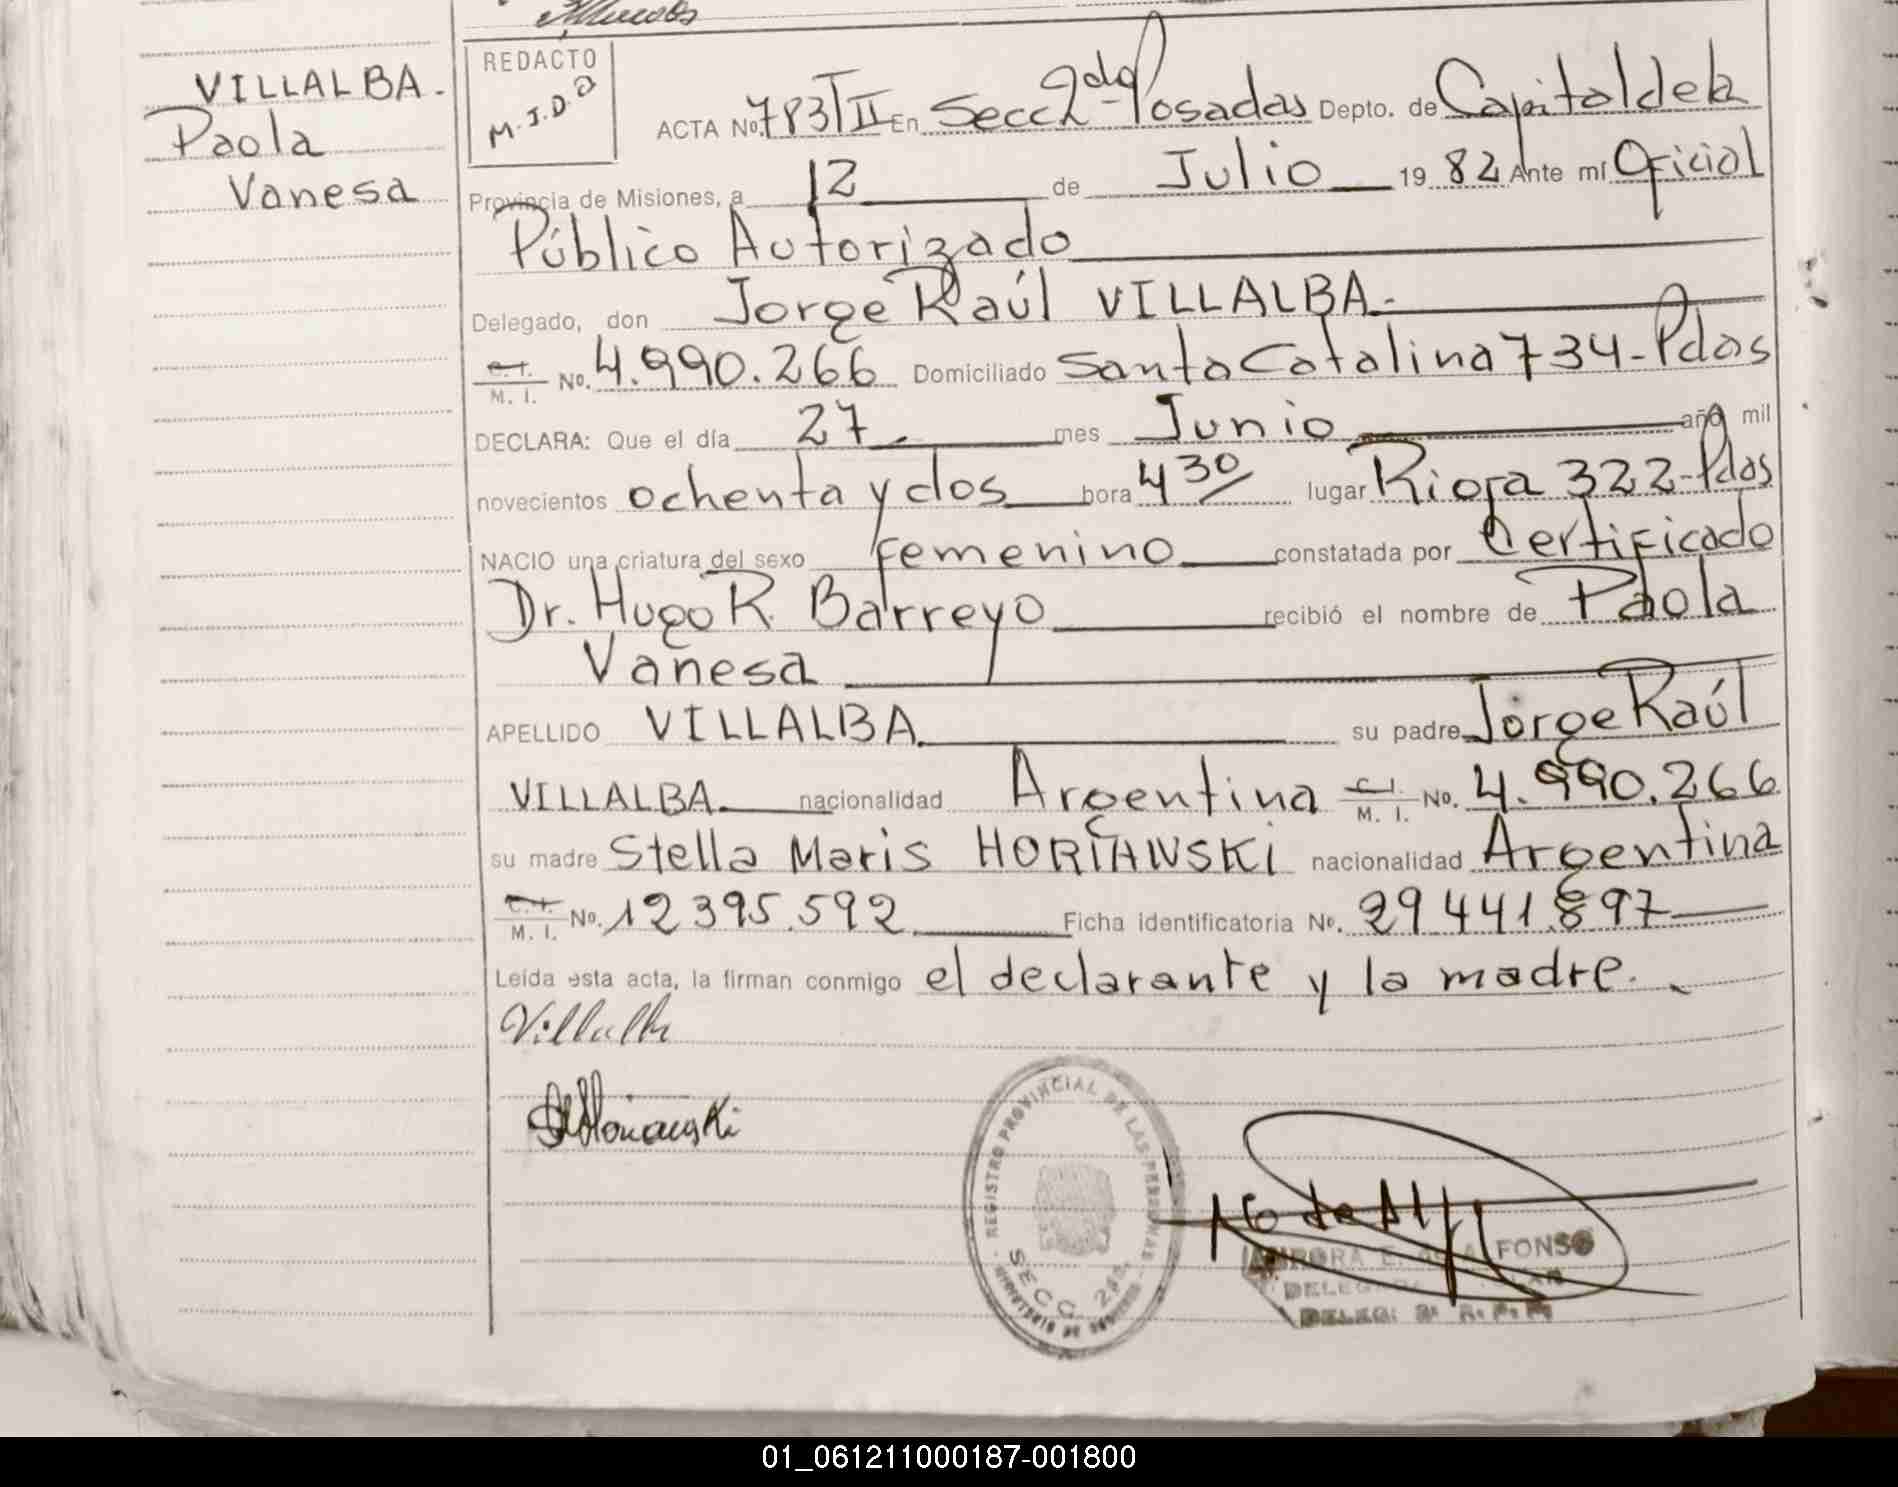 VILLALBA.
Paola
Vanesa
REDACTO
M.J.D.B
ACTA No. 783/TII En Secc 2da Posadas Depto. de Capital de la
Provincia de Misiones, a 12 de Julio 1982 Ante mí Oficial
Público Autorizado
Delegado, don Jorge Raúl VILLALBA.-
C. I. M. I. No. 4.990.266 Domiciliado Santa Catalina 734-Pdas
DECLARA: Que el día 27 mes Junio año mil
novecientos ochenta y dos hora 4 30 lugar Rioja 322-Pdas
NACIO una criatura del sexo femenino constatada por Certificado
Dr. Hugo R. Barreyo recibió el nombre de Paola
Vanesa
APELLIDO VILLALBA su padre Jorge Raúl
VILLALBA nacionalidad Argentina C. I. M. I. No. 4.990.266
su madre Stella Maris HORIANSKI nacionalidad Argentina
C. I. M. I. No. 12 395.592 Ficha identificatoria No. 29 441.897
Leída esta acta, la firman conmigo el declarante y la madre.
Villalba
REGISTRO PROVINCIAL DE LAS PERSONAS
SECC. 2da.
MINISTERIO DE GOBIERNO
AURORA E. de ALFONSO
01_061211000187-001800